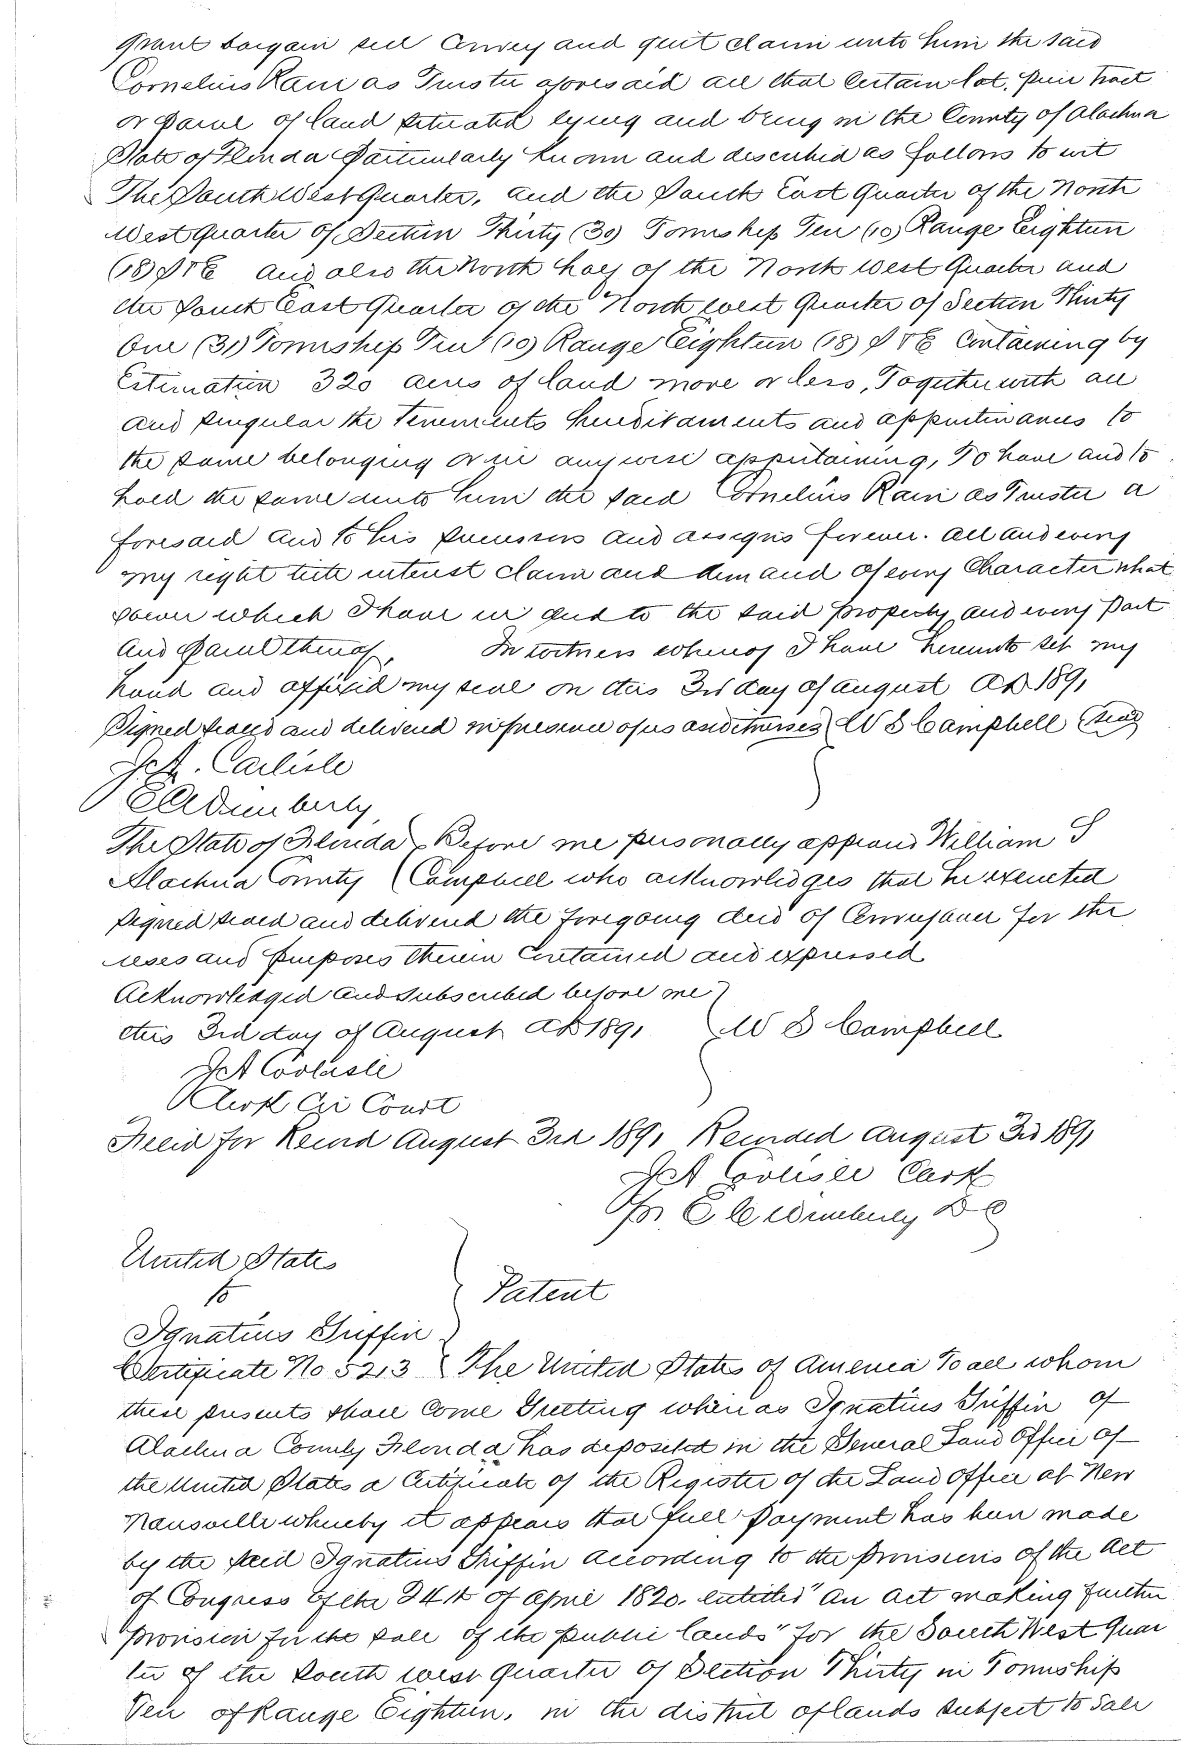 grant bargain sell Convey and quit claim unto him the said
Cornelius Rain as Trustee aforesaid all that certain lot, piece tract
or parcel of land situated lying and being in the County of Alachua
State of Florida particularly known and described as follows to wit
The South West Quarter, and the South East Quarter of the North
West quarter of Section Thirty (30) Township Ten (10) Range Eighteen
(18) S & E and also the North half of the North West Quarter and
the South East Quarter of the North west Quarter of Section Thirty
One (31) Township Ten (10) Range Eighteen (18) S & E Containing by
Estimation 320 acres of land more or less, Together with all
and singular the tenements hereditaments and appurtinances to
the same belonging or in anywise appurtaining, To have and to
hold the same unto him the said Cornelius Rain as Trustee a
foresaid and to his successors and assigns forever. all and every
my right title interest claim and demand of every Character what
soever which I have in and to the said property and every part
and parcel thereof, In witness whereof I have hereunto set my
hand and affixed my seal on this 3rd day of august AD 1891
Signed sealed and delivered in presence of us as witnesses W S Campbell Seal
J A. Carlisle
E C Wimberly
The State of Florida Before me personally appeard William S
Alachua County Campbell who acknowledges that he executed
signed sealed and delivered the foregoing deed of Conveyance for the
uses and purposes therein contained and expressed
Acknowledged and subscribed before me
this 3rd day of August AD 1891 W S Campbell
J A Carlisle
Clerk Cir Court
Filed for Record August 3rd 1891 Recorded august 3rd 1891
J A Carlisle Clerk
Pr E C Wimberly D C
United States
to Patent
Ignatius Griffin
Certificate No 5213 The United States of America To all whom
these presents shall Come Greeting whereas Ignatius Griffin of
Alachua County Florida has deposited in the General Land Office of
the United States a Certificate of the Register of the Land Office at New
nansville whereby it appears that full payment has been made
by the said Ignatius Griffin according to the provisions of the Act
of Congress of the 24th of April 1820. entitled "An Act making further
provision for the sale of the public lands" for the South West Quar
ter of the South west quarter of Section Thirty in Township
Ten of Range Eighteen, in the district of lands subject to Sale